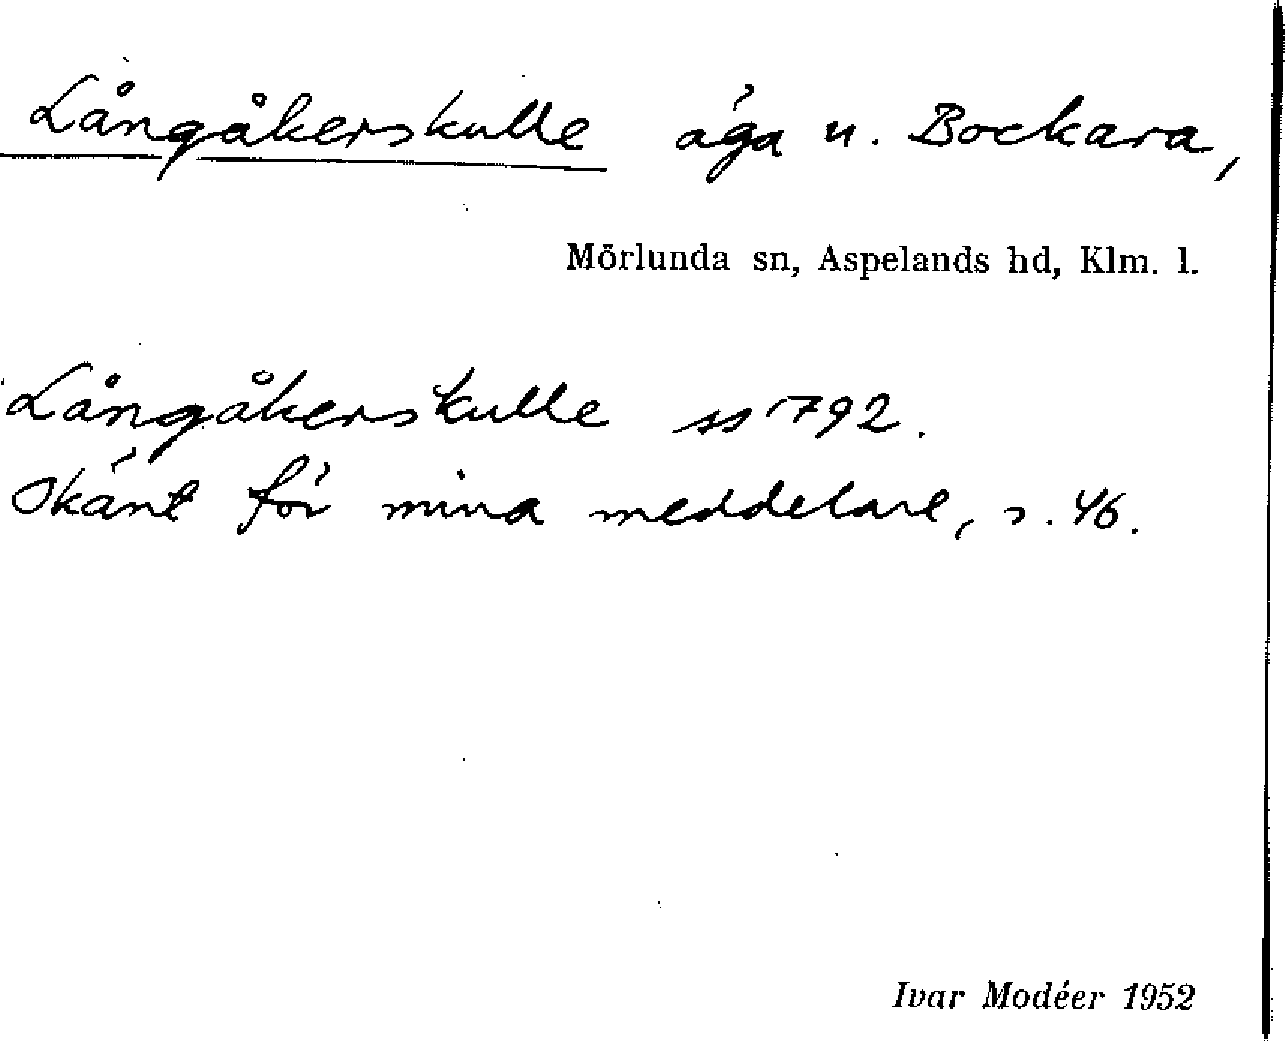 Långåkerskulle äga u. Bockara,
Mörlunda sn, Aspelands hd, Klm. l.
Långåkerskulle ss 1792.
Okänt för mina meddelare, s. 46.
Ivar Modéer 1952